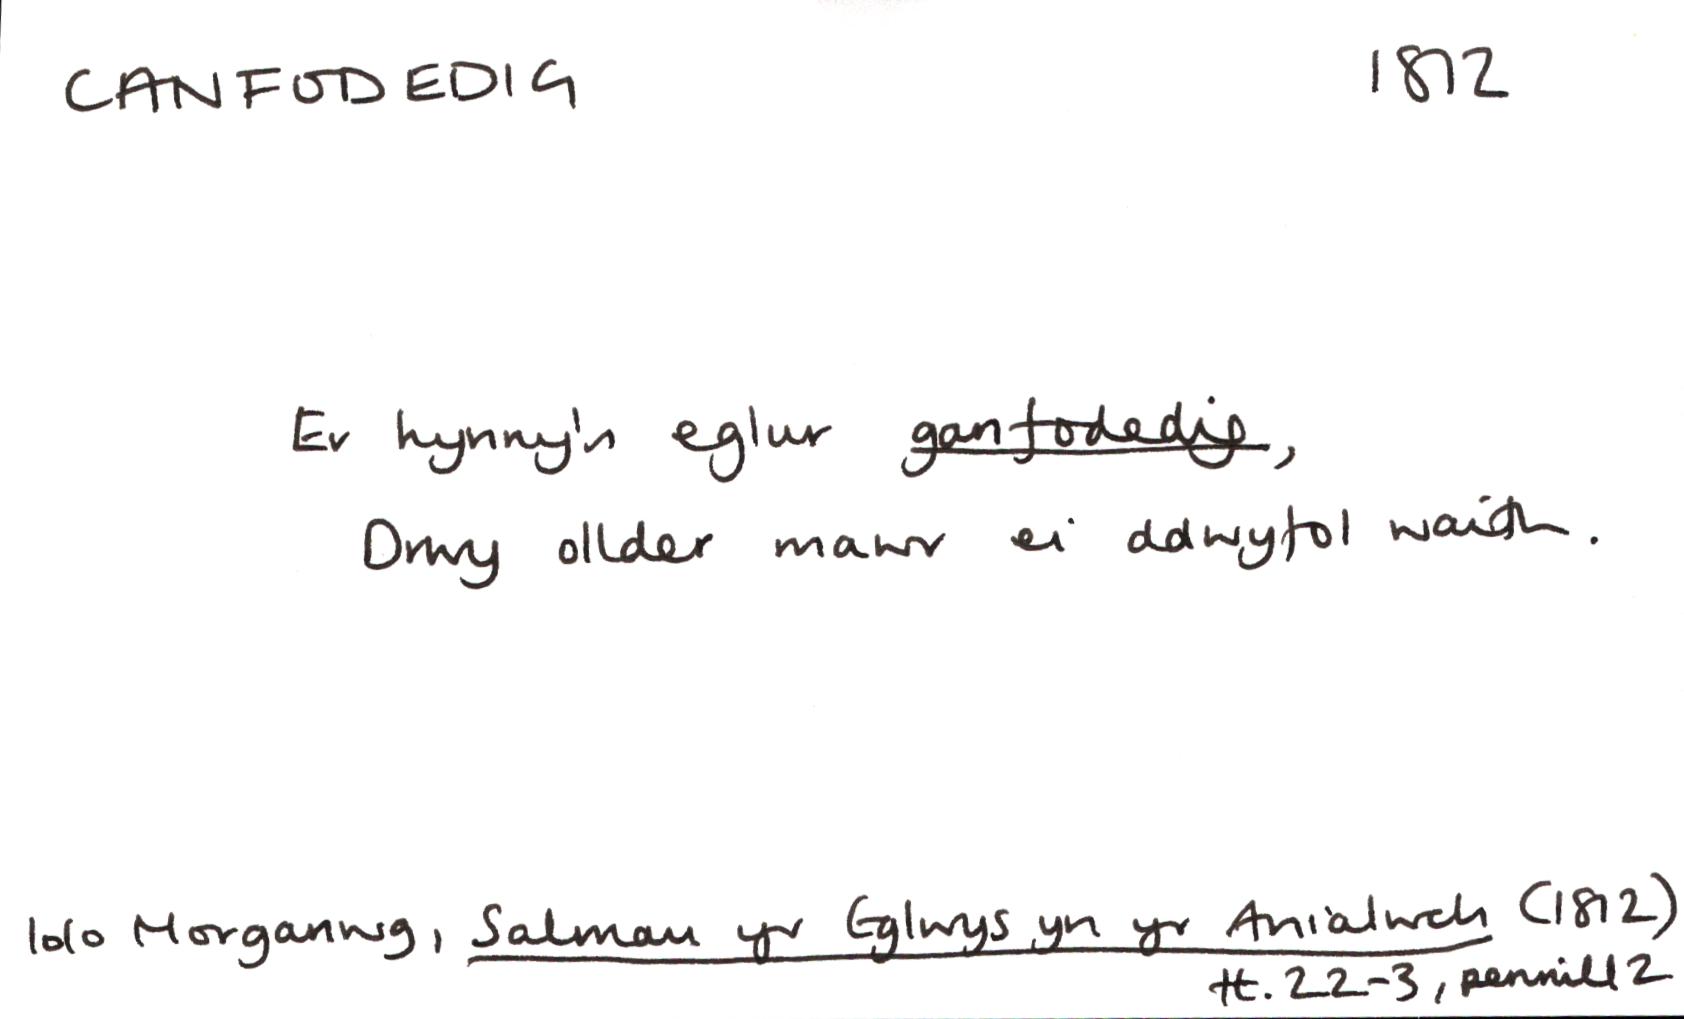 CANFODEDIG 1812
Er hynny'n eglur ganfodedig,
Drwy ollder mawr ei ddwyfol waith.
Iolo Morganwg, Salmau yr Eglwys yn yr Anialwch (1812)
tt. 22-3, pennill 2